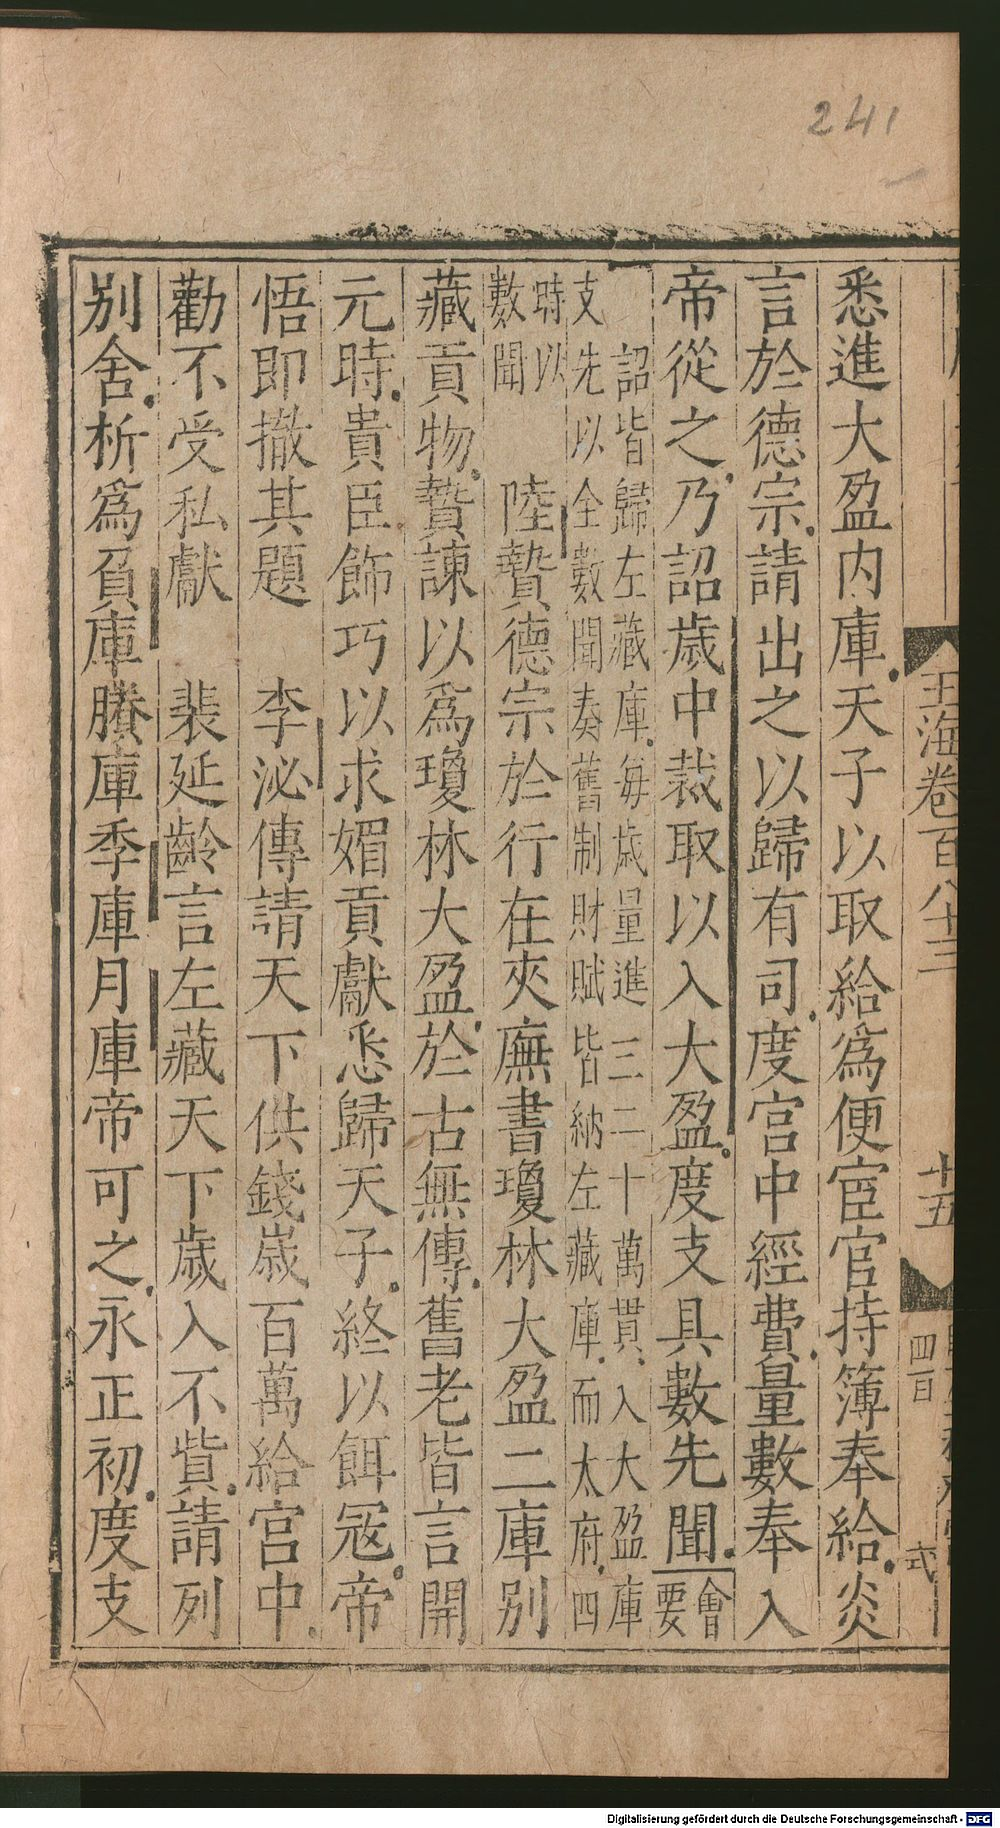 241
玉海卷百八十三 十五 四百
悉進大盈内庫天子以取給爲便宦官持簿奉給炎
言於德宗請出之以歸有司度宫中經費量數奉入
帝從之乃詔歲中裁取以入大盈度支具數先聞
會
要
詔皆歸左藏庫每歲量進三二十萬貫入大盈庫
支先以全數聞奏舊制財賦皆納左藏庫而太府四
時以
數聞
陸贄德宗於行在夾廡書瓊林大盈二庫别
藏貢物贄諫以爲瓊林大盈於古無傳舊老皆言開
元時貴臣飾巧以求媚貢獻悉歸天子終以餌冦帝
悟即撤其題 李泌傳請天下供錢歲百萬給宫中
勸不受私獻 裴延齡言左藏天下歲入不貲請列
别舍析爲負庫賸庫季庫月庫帝可之永正初度支
Digitalisierung gefördert durch die Deutsche Forschungsgemeinschaft - DFG